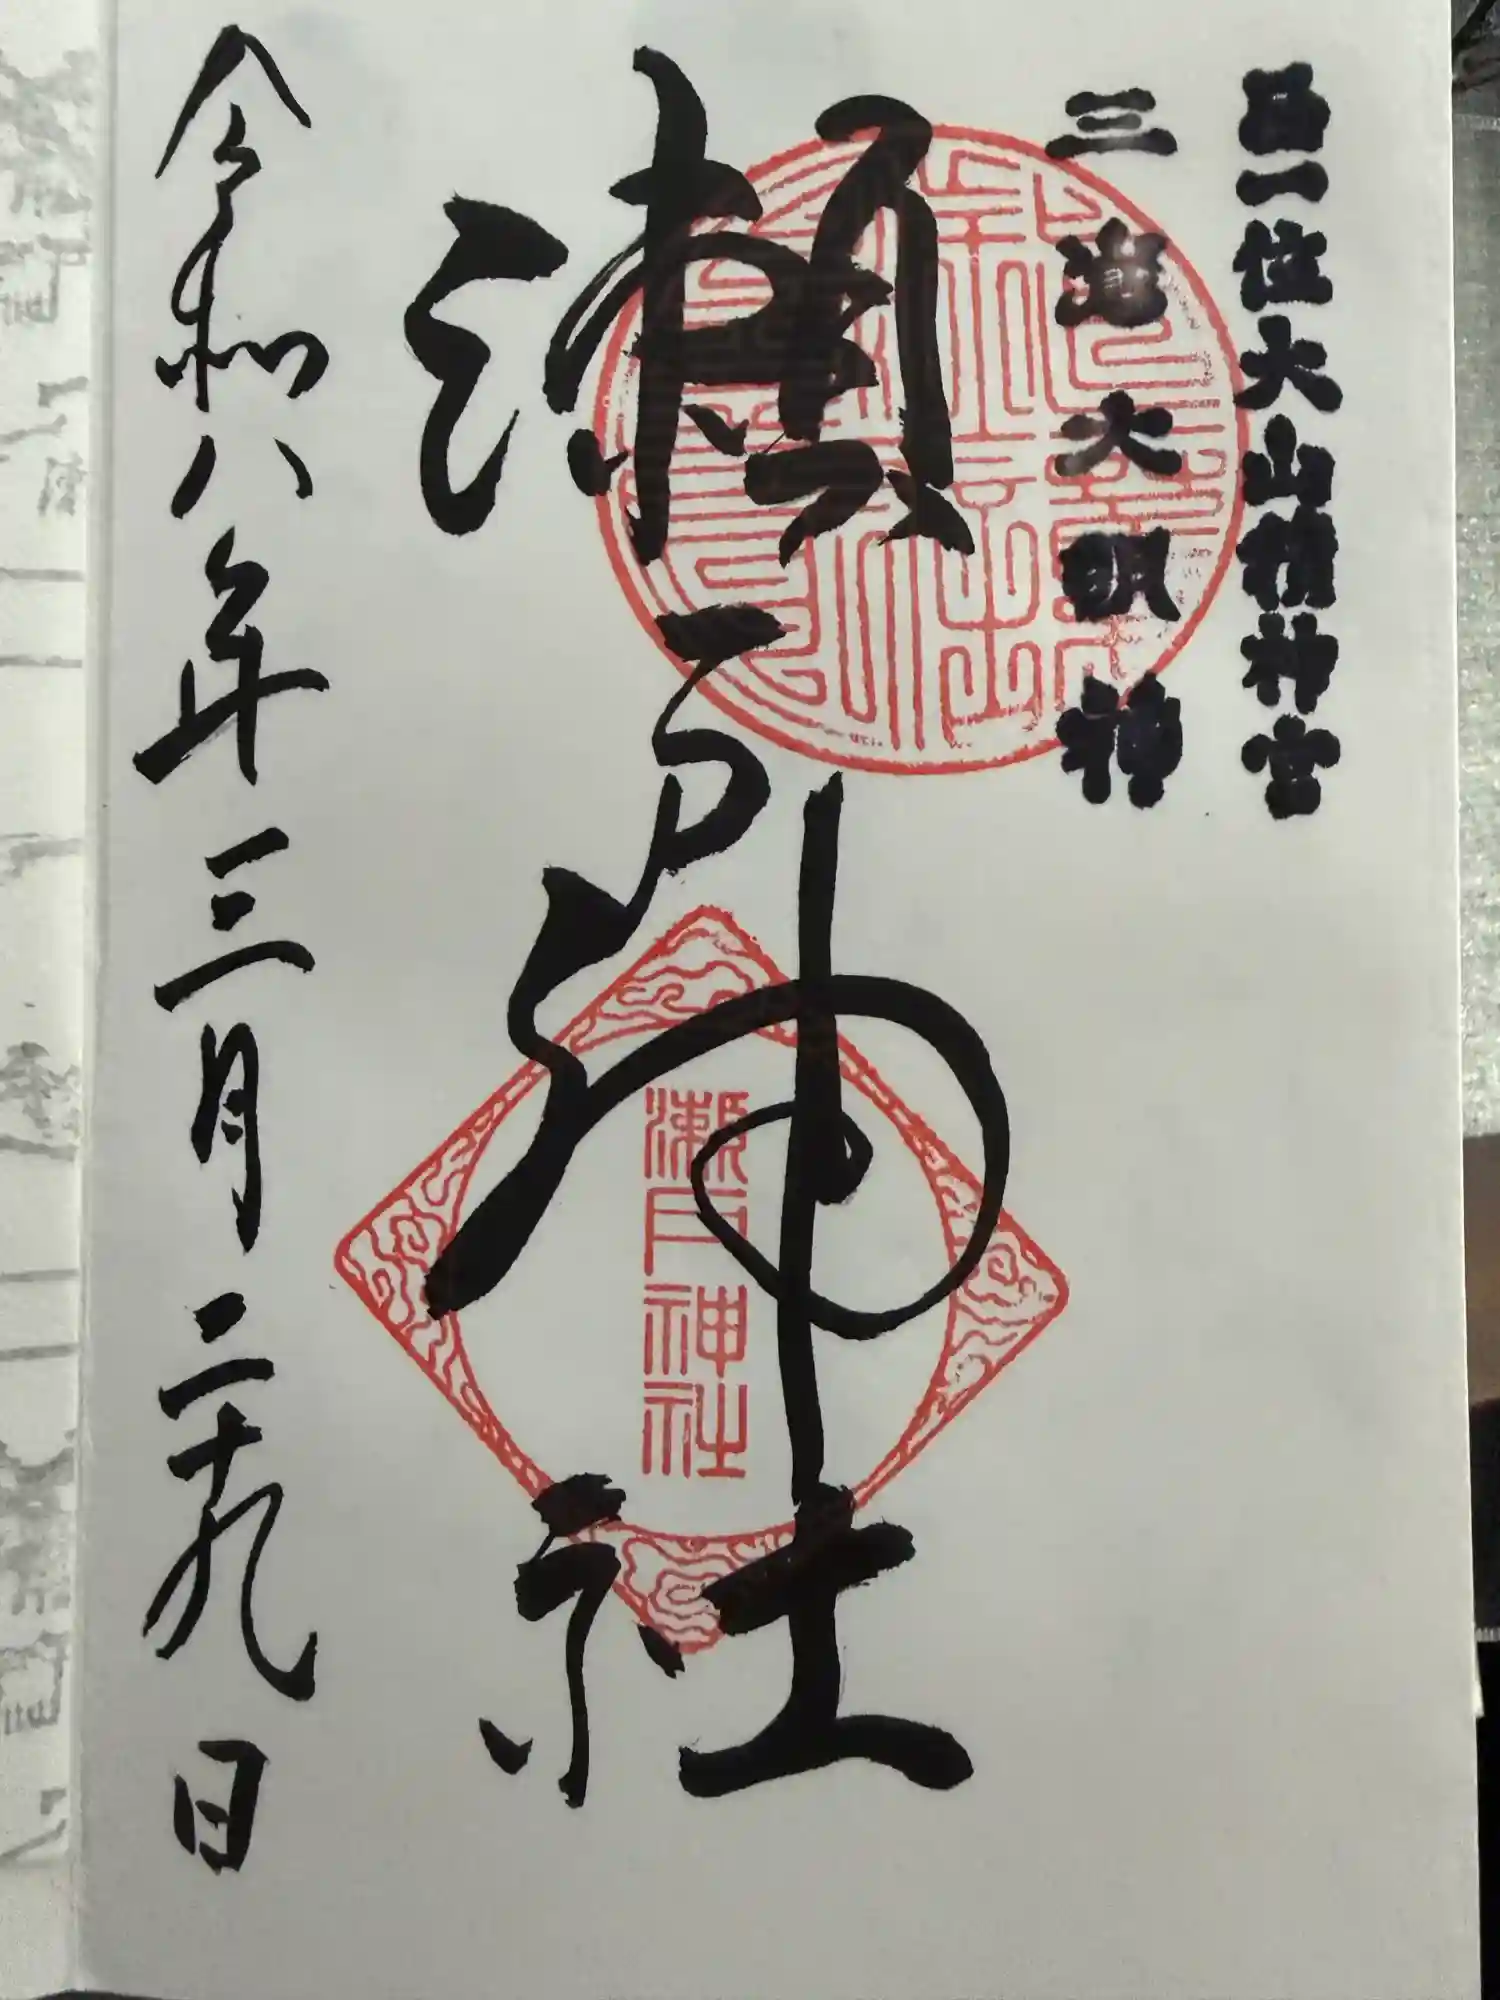 正一位大山積神宮
三嶋大明神
瀬戸神社
瀬戸神社
令和八年三月二十九日